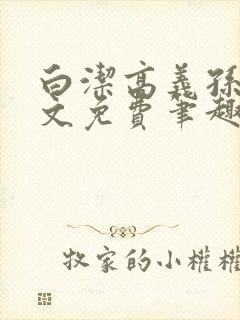 白潔高義孫
文免費筆趣
牧家的小權權